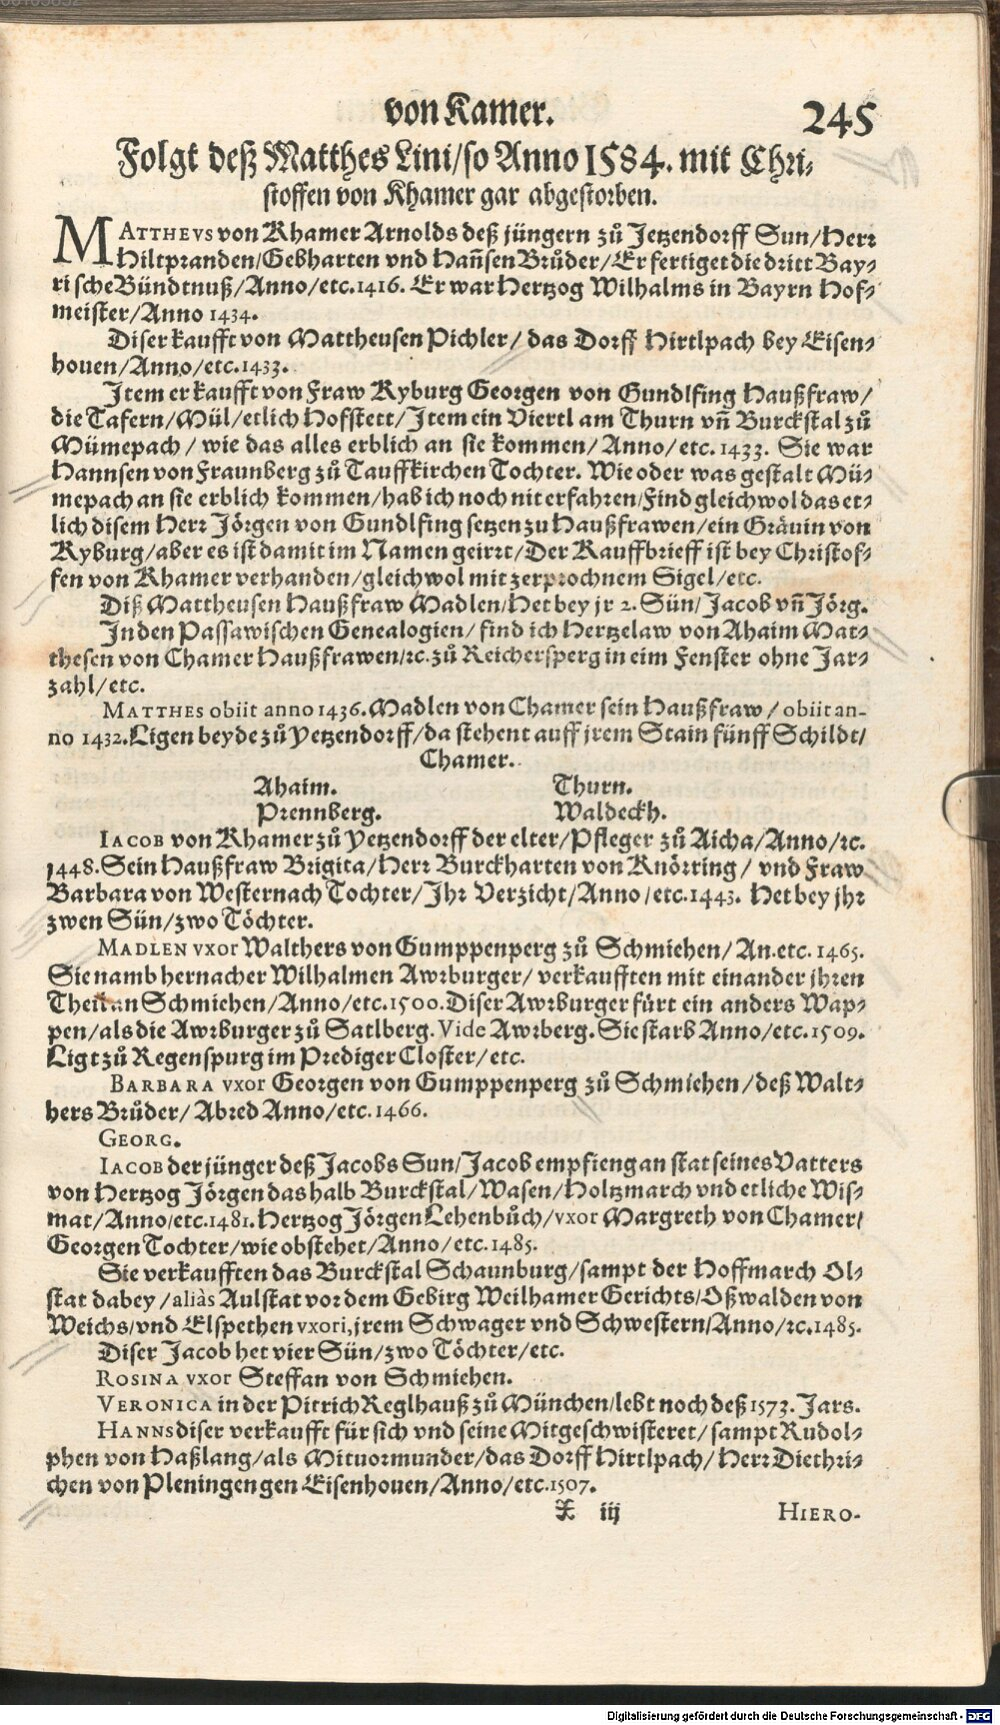 von Kamer. 245
Folgt deß Matthes Lini/so Anno 1584. mit Chri-
stoffen von Khamer gar abgestorben.
MATTHEVS von Khamer Arnolds deß jüngern zů Jetzendorff Sun/Herr
Hiltpranden/Gebharten vnd Hañsen Brůder/Er fertiget die dritt Bay-
rische Bündtnuß/Anno/etc.1416. Er war Hertzog Wilhalms in Bayrn Hof-
meister/Anno 1434.
Diser kaufft von Mattheusen Pichler/das Dorff Hirtlpach bey Eisen-
houen/Anno/etc.1433.
Item er kaufft von Fraw Kyburg Georgen von Gundlfing Haußfraw/
die Tafern/Mül/etlich Hofstett/Item ein Viertl am Thurn vñ Burckstal zů
Mümepach/wie das alles erblich an sie kommen/Anno/etc.1433. Sie war
Hannsen von Fraunberg zů Tauffkirchen Tochter. Wie oder was gestalt Mü-
mepach an sie erblich kommen/hab ich noch nit erfahren/Find gleichwol das et-
lich disem Herr Jörgen von Gundlfing setzen zu Haußfrawen/ein Grävin von
Kyburg/aber es ist damit im Namen geirrt/Der Kauffbrieff ist bey Christof-
fen von Khamer verhanden/gleichwol mit zerprochnem Sigel/etc.
Diß Mattheusen Haußfraw Madlen/Het bey jr 2. Sün/Jacob vñ Jörg.
In den Passawischen Genealogien/find ich Hertzelaw von Ahaim Mat-
thesen von Chamer Haußfrawen/ꝛc.zů Reichersperg in eim Fenster ohne Jar-
zahl/etc.
MATTHES obiit anno 1436. Madlen von Chamer sein Haußfraw/obiit an-
no 1432. Ligen beyde zů Yetzendorff/da stehent auff jrem Stain fünff Schildt/
Chamer.
Ahaim. Thurn.
Prennberg. Waldeckh.
IACOB von Khamer zů Yetzendorff der elter/Pfleger zů Aicha/Anno/ꝛc.
1448. Sein Haußfraw Brigita/Herr Burckharten von Knörring/vnd Fraw
Barbara von Westernach Tochter/Ihr Verzicht/Anno/etc.1443. Het bey jhr
zwen Sün/zwo Töchter.
MADLEN vxor Walthers von Gumppenperg zů Schmiehen/An.etc.1465.
Sie namb hernacher Wilhalmen Awrburger/verkaufften mit einander jhren
Theil an Schmiehen/Anno/etc.1500. Diser Awrburger fürt ein anders Wap-
pen/als die Awrburger zů Satlberg. Vide Awrberg. Sie starb Anno/etc.1509.
Ligt zů Regenspurg im Prediger Closter/etc.
BARBARA vxor Georgen von Gumppenperg zů Schmiehen/deß Walt-
hers Brůder/Abred Anno/etc.1466.
GEORG.
IACOB der jünger deß Jacobs Sun/Jacob empfieng an stat seines Vatters
von Hertzog Jörgen das halb Burckstal/Wasen/Holtzmarch vnd etliche Wis-
mat/Anno/etc.1481. Hertzog Jörgen Lehenbůch/vxor Margreth von Chamer/
Georgen Tochter/wie obstehet/Anno/etc.1485.
Sie verkaufften das Burckstal Schaunburg/sampt der Hoffmarch Ol-
stat dabey/aliàs Aulstat vor dem Gebirg Weilhamer Gerichts/Oßwalden von
Weichs/vnd Elspethen vxori, jrem Schwager vnd Schwestern/Anno/ꝛc.1485.
Diser Jacob het vier Sün/zwo Töchter/etc.
ROSINA vxor Steffan von Schmiehen.
VERONICA in der Pitrich Reglhauß zů München/lebt noch deß 1573. Jars.
HANNS diser verkaufft für sich vnd seine Mitgeschwisteret/sampt Rudol-
phen von Haßlang/als Mituormunder/das Dorff Hirtlpach/Herr Diethri-
chen von Pleningen gen Eisenhouen/Anno/etc.1507.
X iij HIERO-
Digitalisierung gefördert durch die Deutsche Forschungsgemeinschaft - DFG